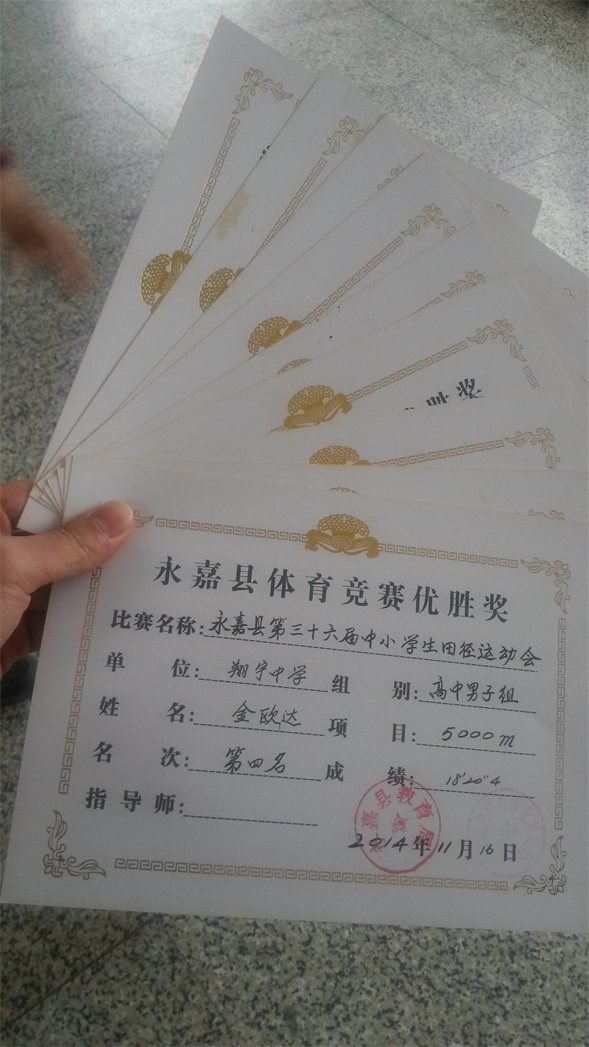 胜奖
永嘉县体育竞赛优胜奖
比赛名称:永嘉县第三十六届中小学生田径运动会
单位:翔宇中学 组别:高中男子组
姓名:金欧达 项目:5000m
名次:第四名 成绩:18'20"4
指导师:
嘉县教育局
2014年11月16日